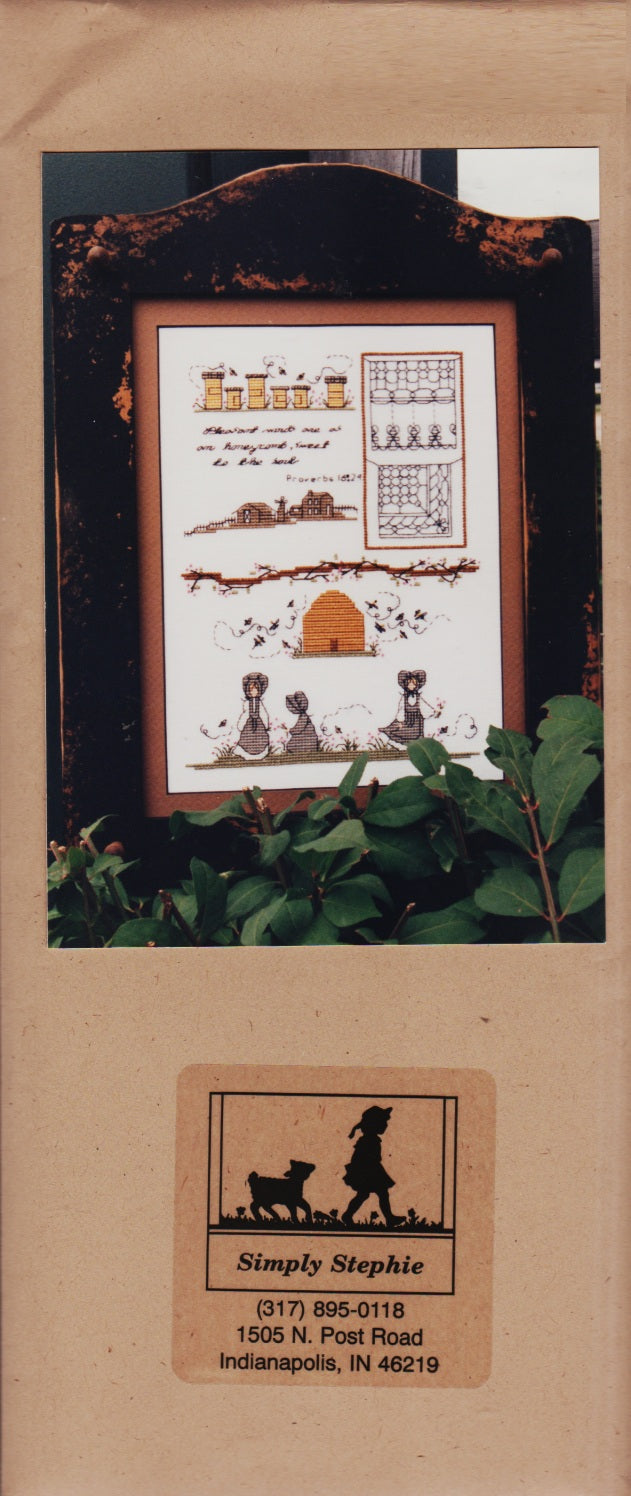 Pleasant words are as
an honeycomb, sweet
to the soul
Proverbs 16:24
Simply Stephie
(317) 895-0118
1505 N. Post Road
Indianapolis, IN 46219